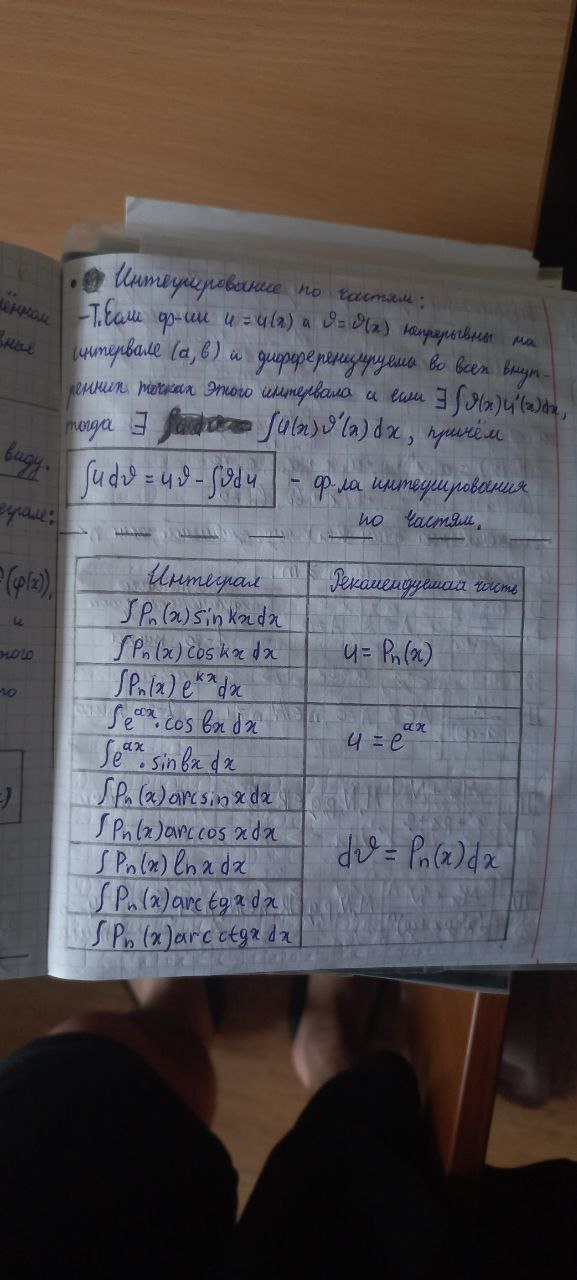 • Интегрирование по частям:
-Т. Если ф-ии u = u(x) и ϑ = ϑ(x) непрерывны на
интервале (a, b) и дифференцируемы во всех внут-
ренних точках этого интервала и если ∃ ∫ϑ(x) u'(x)dx,
тогда ∃ ∫u(x) ϑ'(x) dx, причём
∫u dϑ = uϑ - ∫ϑ du - ф-ла интегрирования
по частям.
Интеграл Рекомендуемая часть
∫Pn(x) sin kx dx
∫Pn(x) cos kx dx u = Pn(x)
∫Pn(x) e^kx dx
∫e^ax · cos bx dx u = e^ax
∫e^ax · sin bx dx
∫Pn(x) arcsin x dx
∫Pn(x) arccos x dx
∫Pn(x) ln x dx dϑ = Pn(x) dx
∫Pn(x) arctg x dx
∫Pn(x) arcctg x dx
виду.
(φ(x)),
и